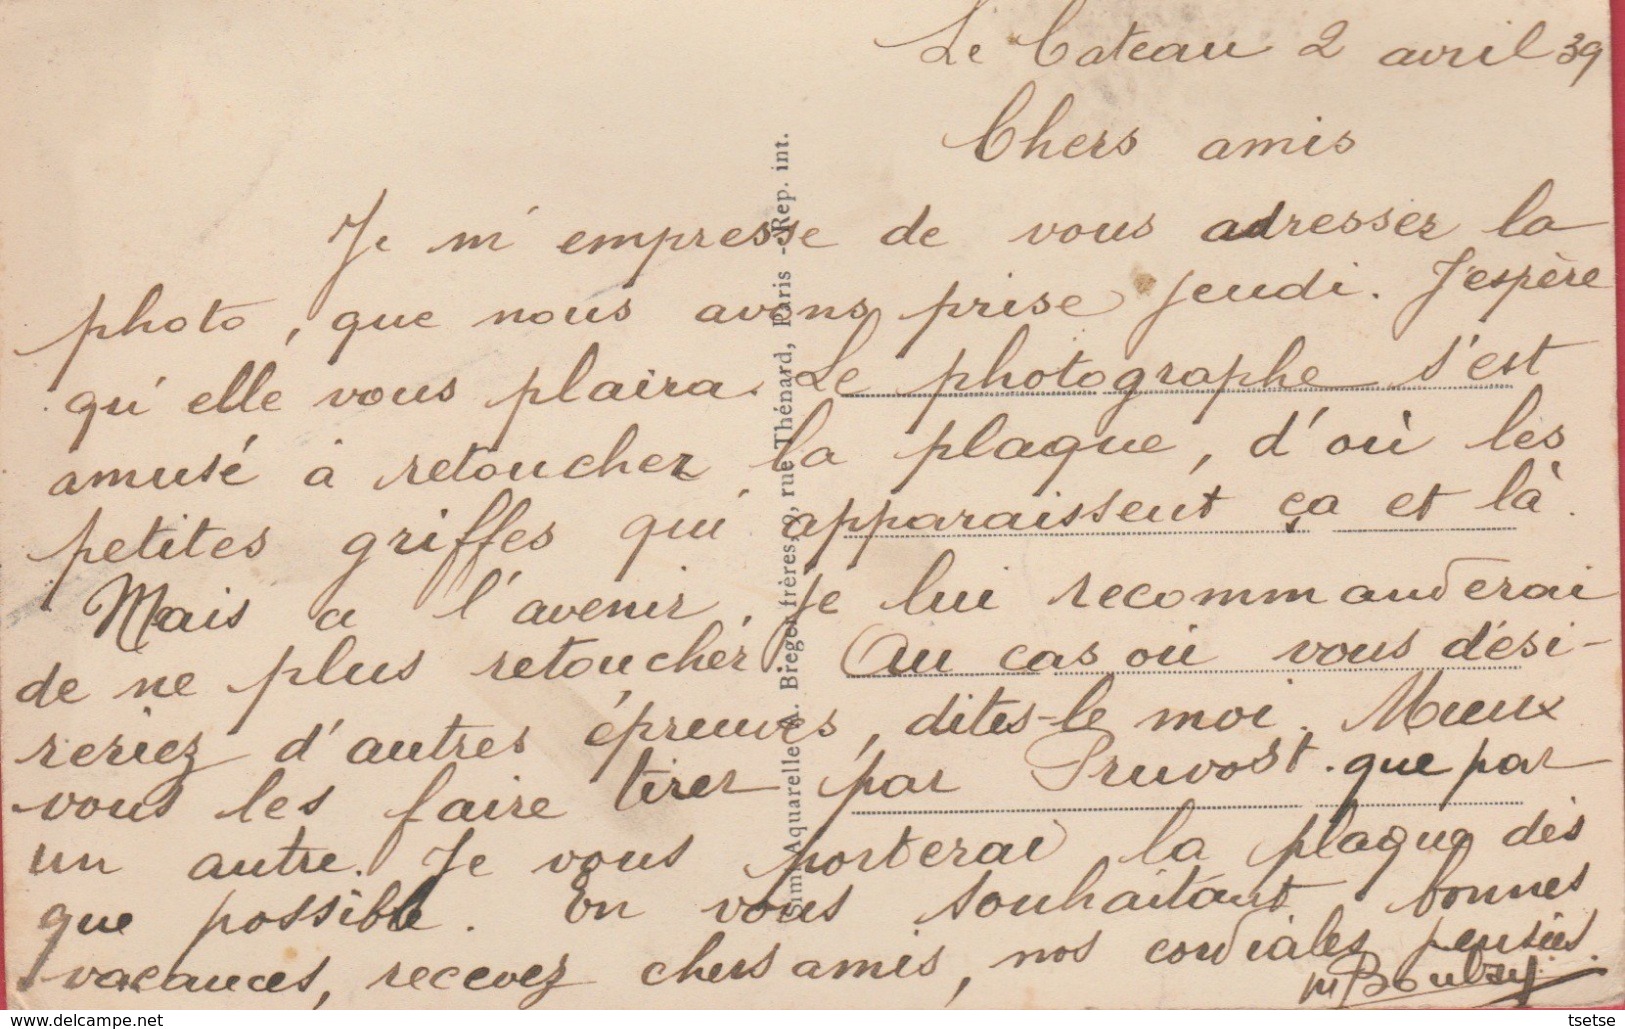 Le Cateau 2 avril 39
Chers amis
Je m'empresse de vous adresser la
photo, que nous avons prise jeudi. J'espère
qu'elle vous plaira. Le photographe s'est
amusé à retoucher la plaque, d'où les
petites griffes qui apparaissent ça et là.
Mais a l'avenir, je lui recommanderai
de ne plus retoucher. Au cas où vous dési-
reriez d'autres épreuves, dites-le moi. Mieux
vous les faire tirer par Pruvost que par
un autre. Je vous porterai la plaque dès
que possible. En vous souhaitant bonnes
vacances, recevez chers amis, nos cordiales pensées.
Aquarelle A. Breger frères 9, rue Thénard, Paris - Rep. int.
tsetse